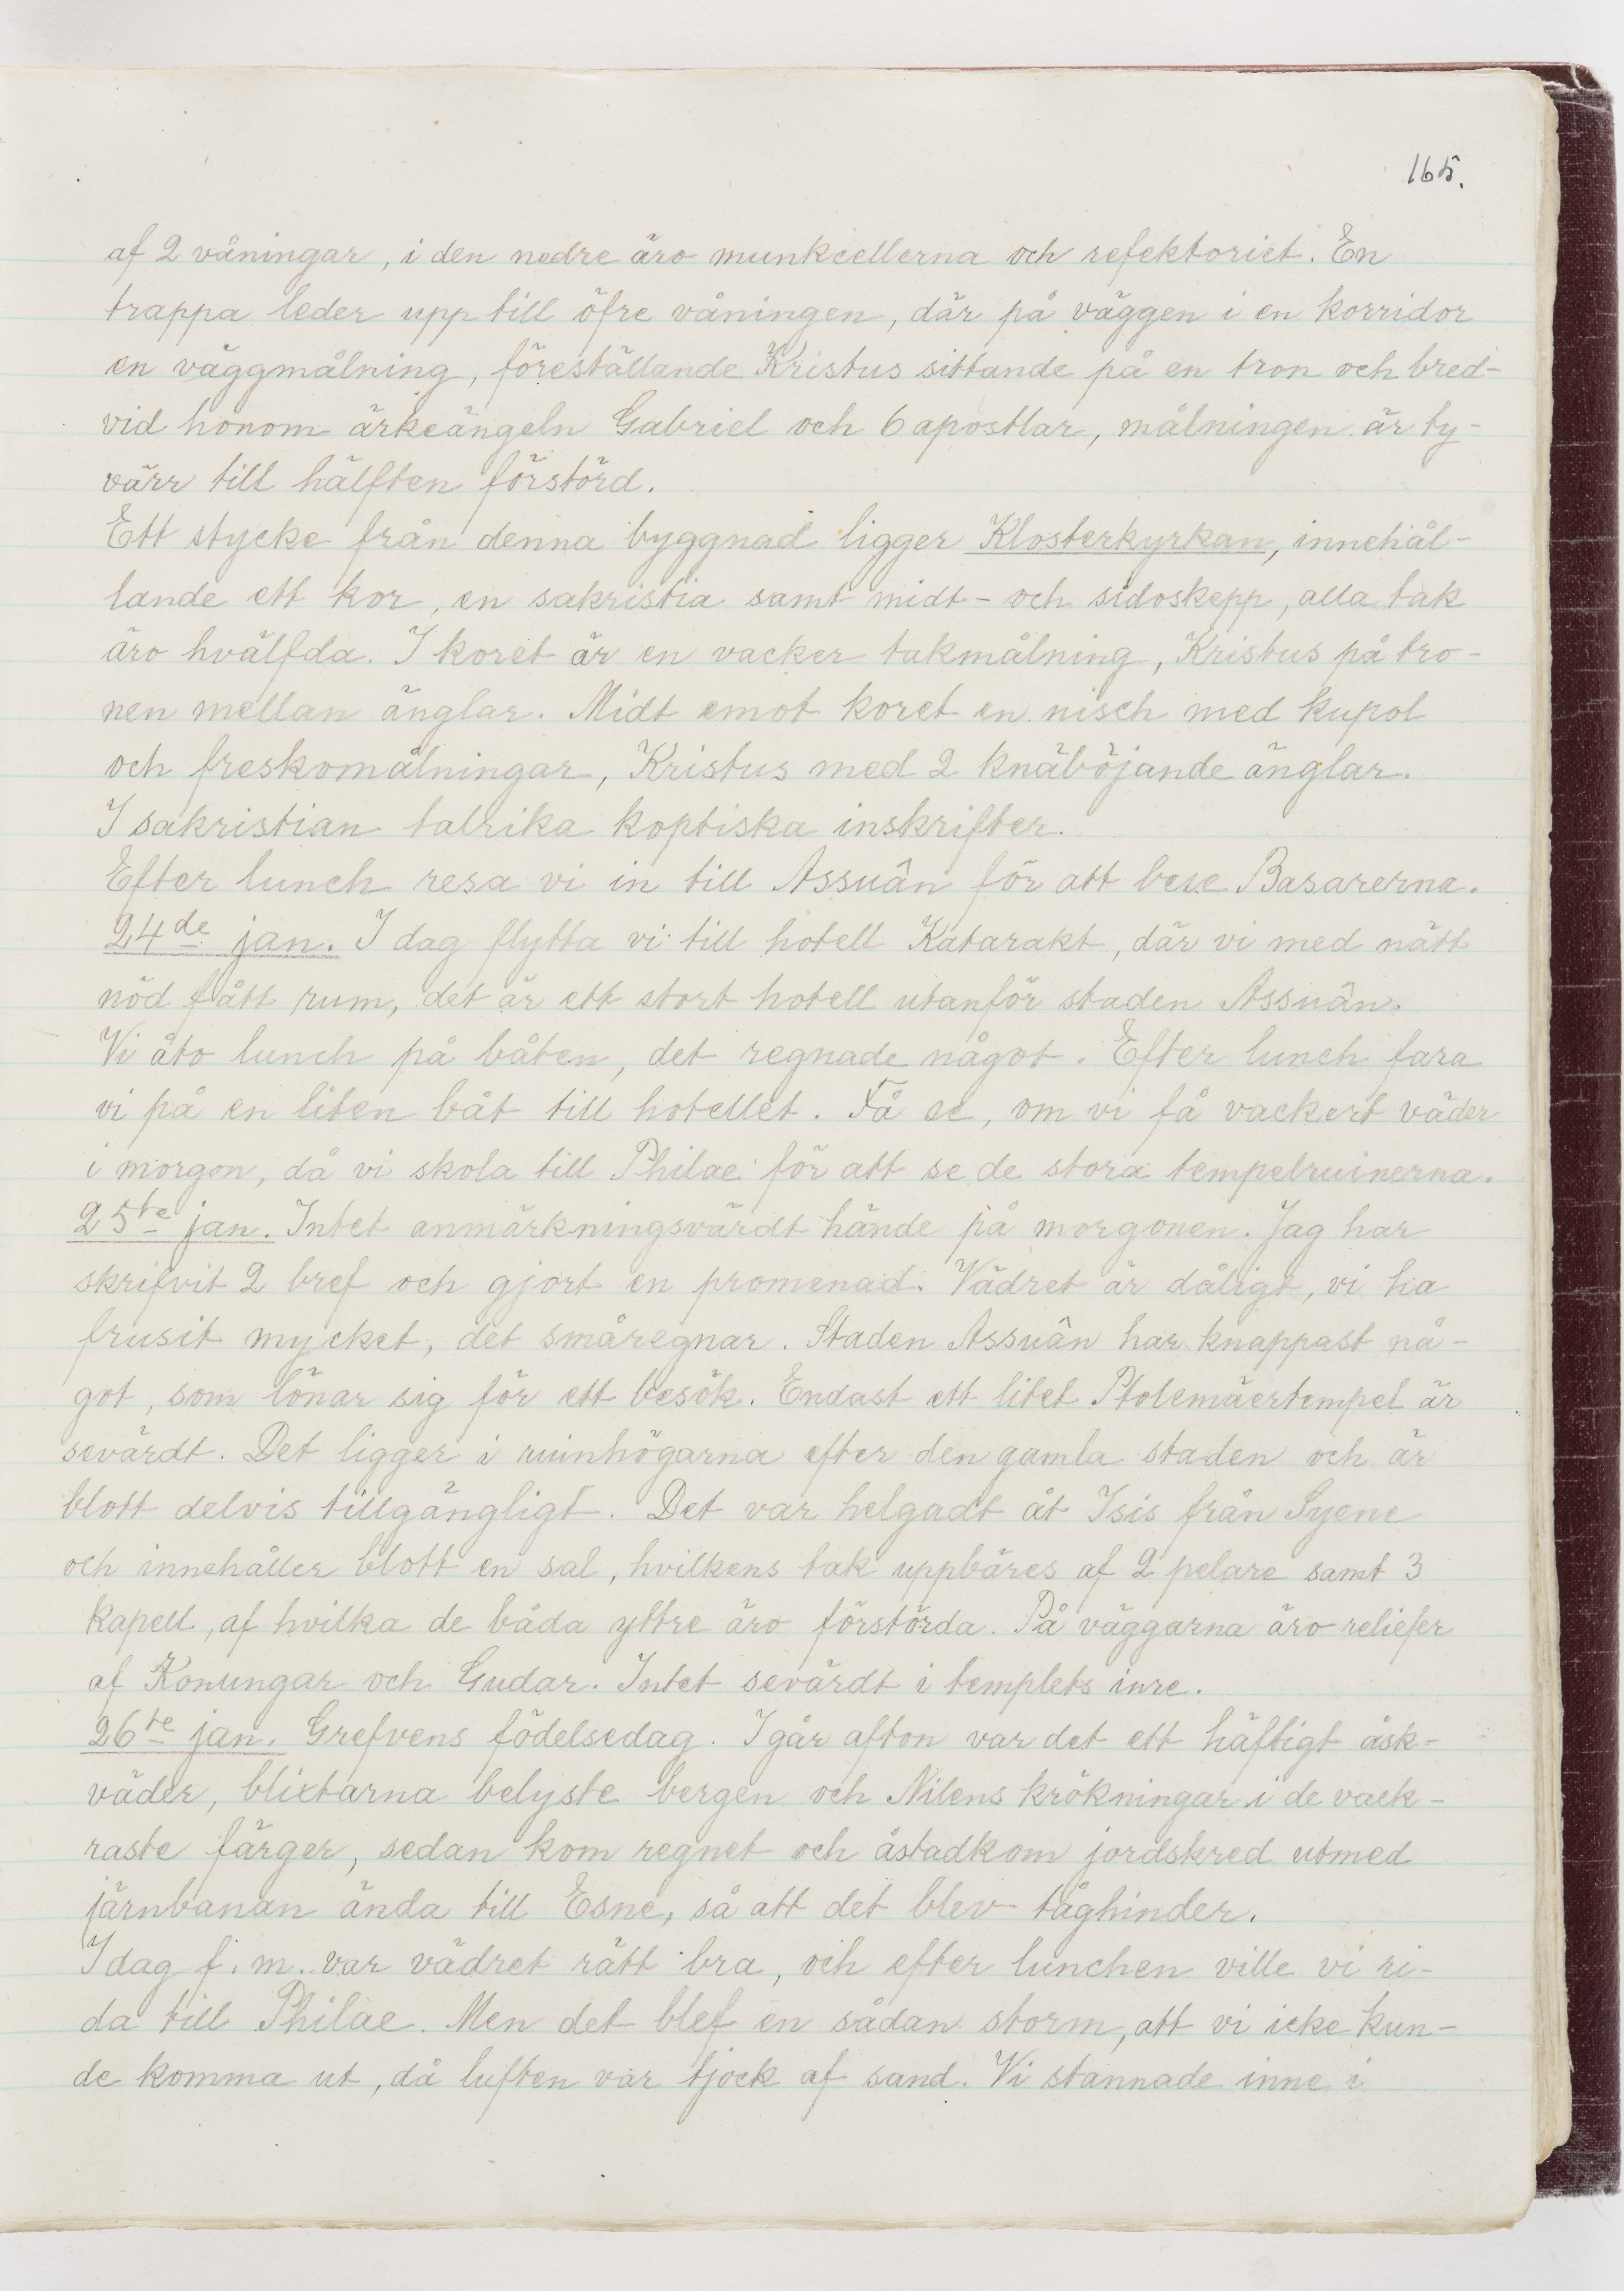 165.
af 2 våningar, i den nedre äro munkcellerna och refektoriet. En
trappa leder upp till öfre våningen, där på väggen i en korridor
en väggmålning, föreställande Kristus sittande på en tron och bred-
vid honom ärkeängeln Gabriel och 6 apostlar, målningen är ty-
värr till hälften förstörd.
Ett stycke från denna byggnad ligger Klosterkyrkan, innehål-
lande ett kor, en sakristia samt midt- och sidoskepp, alla tak
äro hvälfda. I koret är en vacker takmålning, Kristus på tro-
nen mellan änglar. Midt emot koret en nisch med kupol
och freskomålningar, Kristus med 2 knäböjande änglar.
I sakristian talrika koptiska inskrifter.
Efter lunch resa vi in till Assuân för att bese Basarerna.
24de jan. I dag flytta vi till hotell Katarakt, där vi med nätt
nöd fått rum, det är ett stort hotell utanför staden Assuân.
Vi åto lunch på båten, det regnade något. Efter lunch fara
vi på en liten båt till hotellet. Få se, om vi få vackert väder
i morgon, då vi skola till Philae för att se de stora tempelruinerna.
25te jan. Intet anmärkningsvärdt hände på morgonen. Jag har
skrifvit 2 bref och gjort en promenad. Vädret är dåligt, vi ha
frusit mycket, det småregnar. Staden Assuân har knappast nå-
got, som lönar sig för ett besök. Endast ett litet Ptolemäertempel är
sevärdt. Det ligger i ruinhögarna efter den gamla staden och är
blott delvis tillgängligt. Det var helgadt åt Isis från Syene
och innehåller blott en sal, hvilkens tak uppbäres af 2 pelare samt 3
kapell, af hvilka de båda yttre äro förstörda. På väggarna äro reliefer
af Konungar och Gudar. Intet sevärdt i templets inre.
26te jan. Grefvens födelsedag. I går afton var det ett häftigt åsk-
väder, blixtarna belyste bergen och Nilens krökningar i de vack-
raste färger, sedan kom regnet och åstadkom jordskred utmed
järnbanan ända till Esne, så att det blev tåghinder.
I dag f. m. var vädret rätt bra, och efter lunchen ville vi ri-
da till Philae. Men det blef en sådan storm, att vi icke kun-
de komma ut, då luften var tjock af sand. Vi stannade inne i